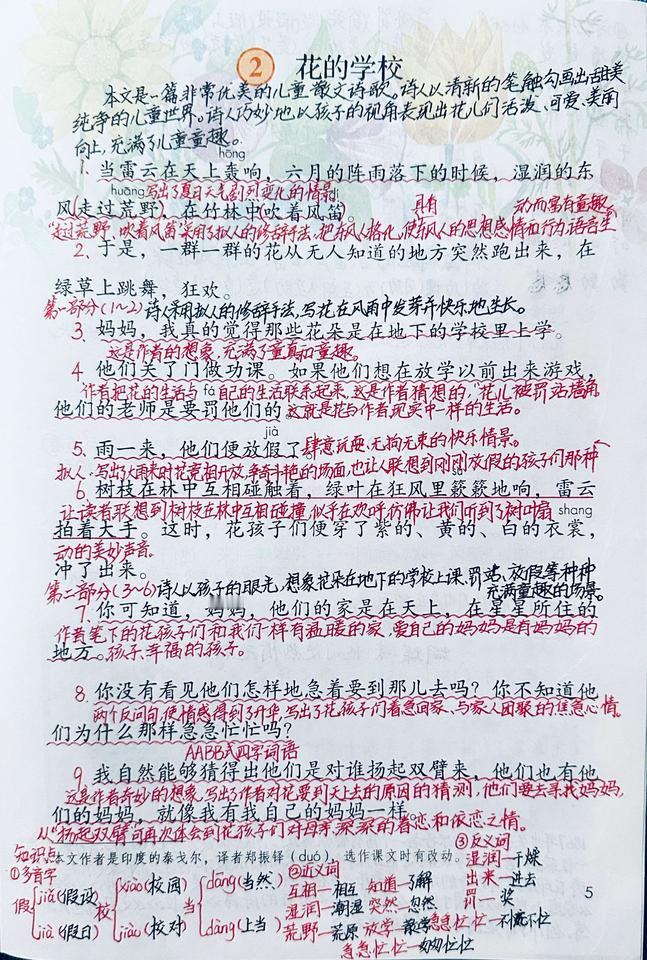 2 花的学校
本文是一篇非常优美的儿童散文诗歌。诗人以清新的笔触勾画出甜美
纯净的儿童世界。诗人巧妙地以孩子的视角表现出花儿们活泼、可爱、美丽
向上,充满了儿童童趣。
hōng
1. 当雷云在天上轰响,六月的阵雨落下的时候,湿润的东
huāng 写出了夏日天气剧烈变化的情景 dí
风(走过荒野),在竹林中(吹着风笛)。 具有 动而富有童趣。
“走过荒野、吹着风笛”采用了拟人的修辞手法,把东风人格化,使东风人的思想感情和行为,语言生
2. 于是,一群一群的花从无人知道的地方突然跑出来,在
绿草上跳舞,狂欢。
第一部分(1~2)诗人采用拟人的修辞手法,写花在风雨中发芽并快乐地生长。
3. 妈妈,我真的觉得那些花朵是在地下的学校里上学。
这是作者的想象,充满了童真和童趣。
4. 他们关了门做功课。如果他们想在放学以前出来游戏,
作者把花的生活与 fá 自己的生活联系起来,这是作者猜想的,“花儿被罚站墙角
他们的老师是要罚他们的。这就是花与作者现实中一样的生活。
jià
5. 雨一来,他们便放假了。肆意玩耍、无拘无束的快乐情景。
拟人.写出了大雨来时花竞相开放,争奇斗艳的场面,也让人联想到刚刚放假的孩子们那种
sù
6. 树枝在林中互相碰触着,绿叶在狂风里簌簌地响,雷云
让读者联想到树枝在林中互相碰撞,似乎在欢呼,仿佛让我们听到了树叶扇 shang
拍着大手。这时,花孩子们便穿了紫的、黄的、白的衣裳,
动的美妙声音.
冲了出来。
第二部分(3~6)诗人以孩子的眼光,想象花朵在地下的学校上课、罚站、放假等种种
充满童趣的场景。
7. 你可知道,妈妈,他们的家是在天上,在星星所住的
作者笔下的花孩子们和我们一样有温暖的家,爱自己的妈妈是有妈妈的
地方。孩子,幸福的孩子。
8. 你没有看见他们怎样地急着要到那儿去吗?你不知道他
两个反问句,使情感得到了升华,写出了花孩子们着急回家、与家人团聚的焦急心情。
们为什么那样急急忙忙吗?
AABB式四字词语
9. 我自然能够猜得出他们是对谁扬起双臂来,他们也有他
这是作者奇妙的想象,写出了作者对花要到天上去的原因的猜测,他们要去寻找妈妈,
们的妈妈,就像我有我自己的妈妈一样。
从“扬起双臂”可再次体会到花孩子们对母亲深深的眷恋和依恋之情。
知识点 本文作者是印度的泰戈尔,译者郑振铎(duó),选作课文时有改动。
①多音字
假 jià(假设) jià(假日)
校 xiào(校园) jiào(校对)
当 dāng(当然) dàng(上当)
②近义词
互相—相互 知道—了解
湿润—潮湿 突然—忽然
荒野—荒原 放学—散学
急急忙忙—匆匆忙忙
③反义词
湿润—干燥
出来—进去
罚—奖
急急忙忙—不慌不忙
5